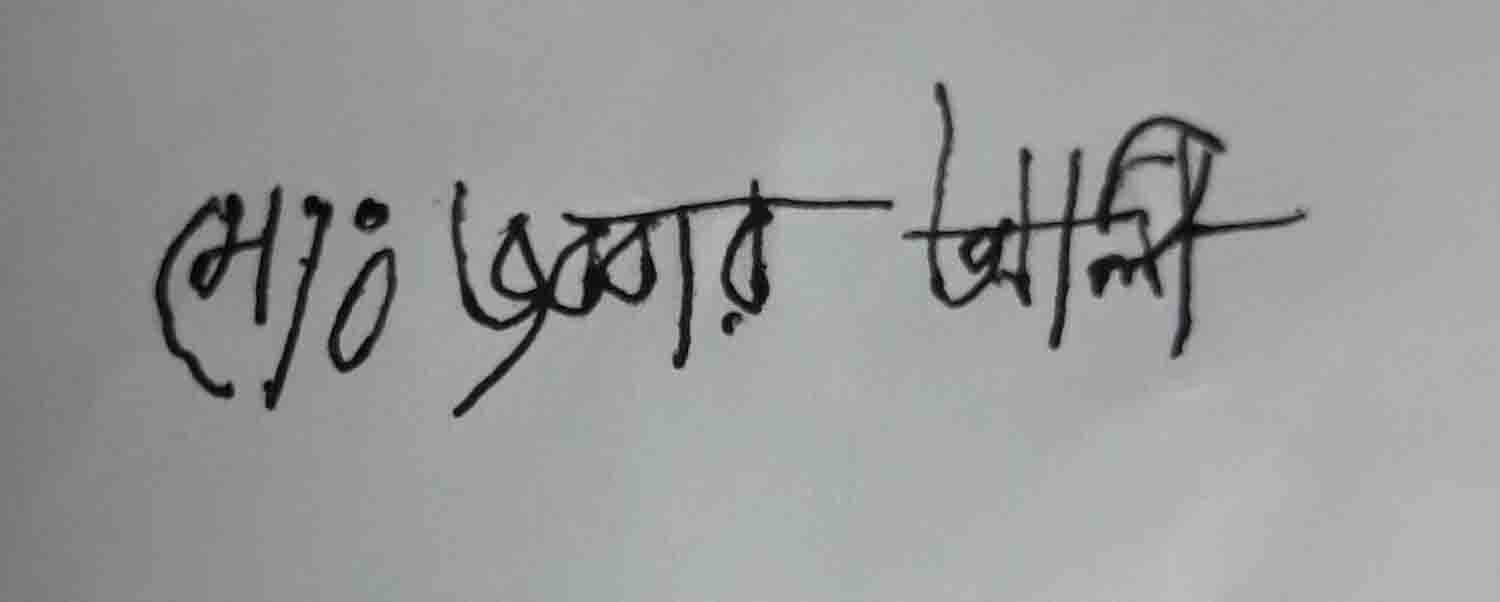 মোঃ জব্বার আলী